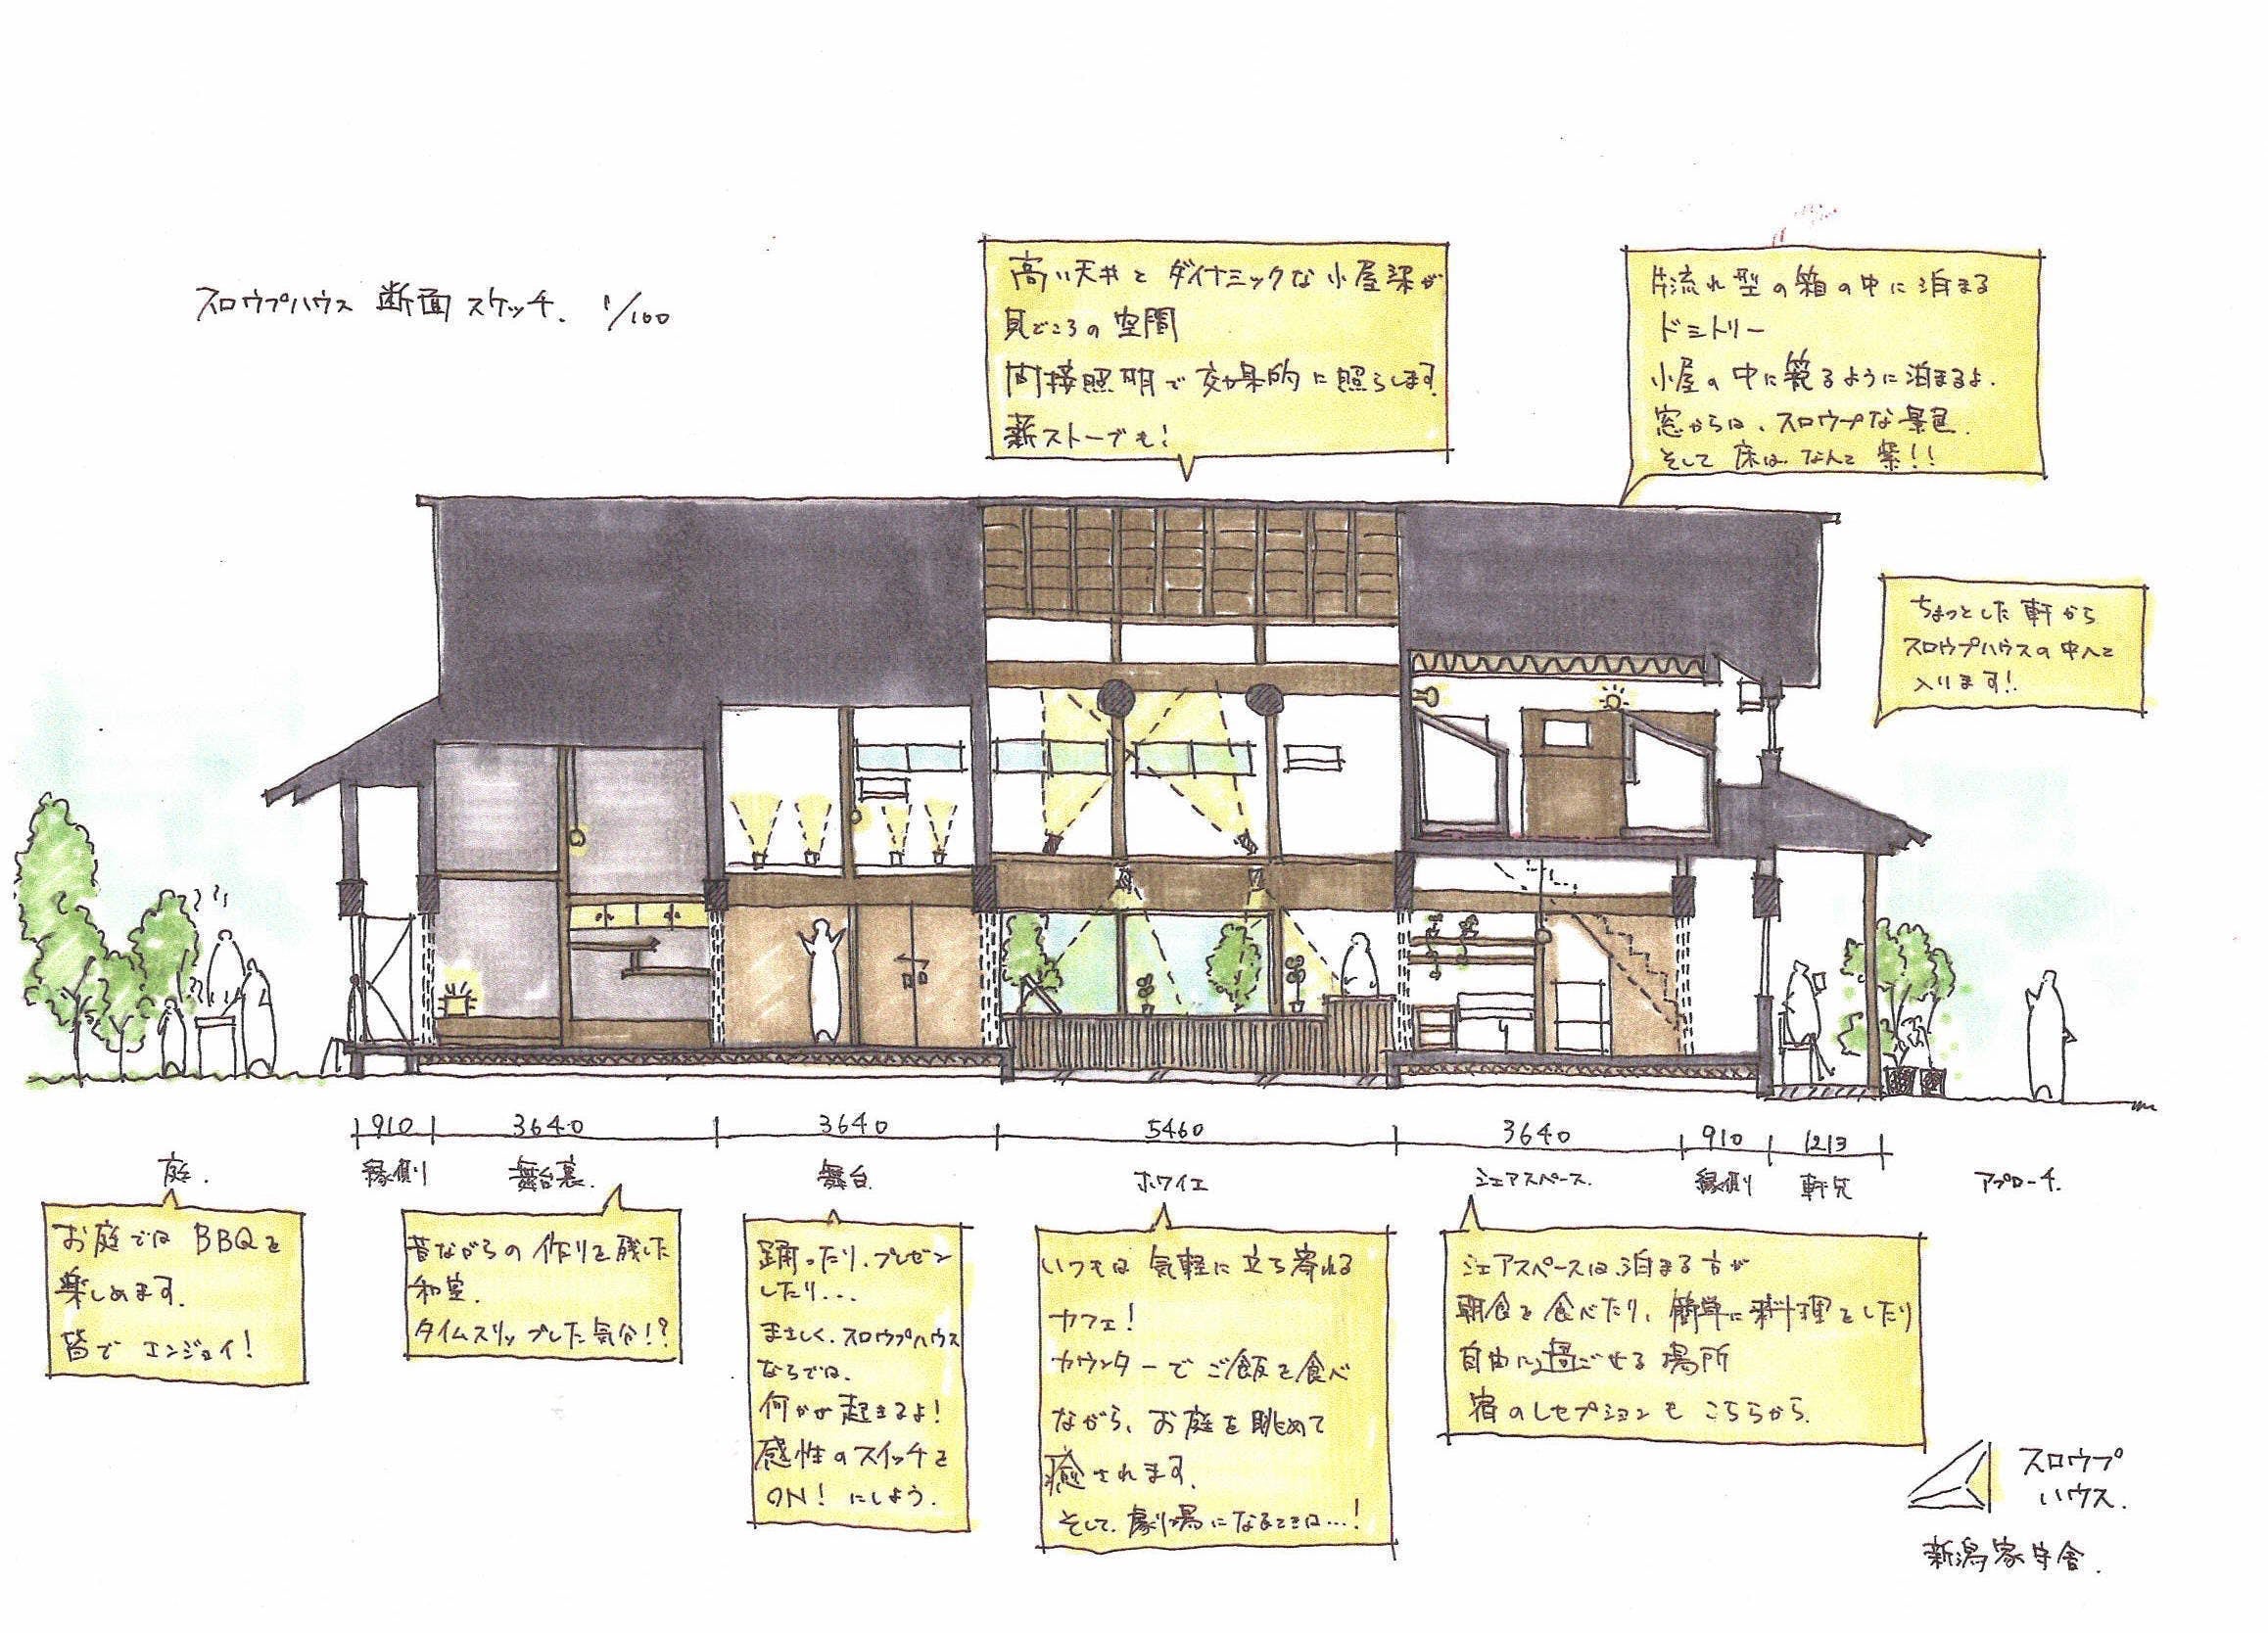 スロウプハウス 断面スケッチ. 1/100
高い天井と ダイナミックな小屋梁が
見どころの空間
間接照明で効果的に照らします.
薪ストーブも!
片流れ型の箱の中に泊まる
ドミトリー
小屋の中に籠るように泊まるよ.
窓からは、スロウプな景色.
そして 床は、なんと 紫!!
ちょっとした軒から
スロウプハウスの中へと
入ります!
910
3640
3640
5460
3640
910
1213
庭.
縁側
舞台裏.
舞台.
ホワイエ
シェアスペース.
縁側
軒先
アプローチ.
お庭では BBQを
楽しめます.
皆で エンジョイ!
昔ながらの 作りを残した
和室.
タイムスリップした気分!?
踊ったり、プレゼン
したり...
まさしく、スロウプハウス
ならでは.
何かが起きるよ!
感性のスイッチを
ON! にしよう.
いつもは 気軽に立ち寄れる
カフェ!
カウンターで ご飯を食べ
ながら、お庭を眺めて
癒されます.
そして、劇場になるときは...!
シェアスペースは 泊まる方が
朝食を 食べたり、簡単に料理をしたり
自由に過ごせる 場所
宿のレセプションも こちらから.
スロウプ
ハウス.
新潟家守舎.